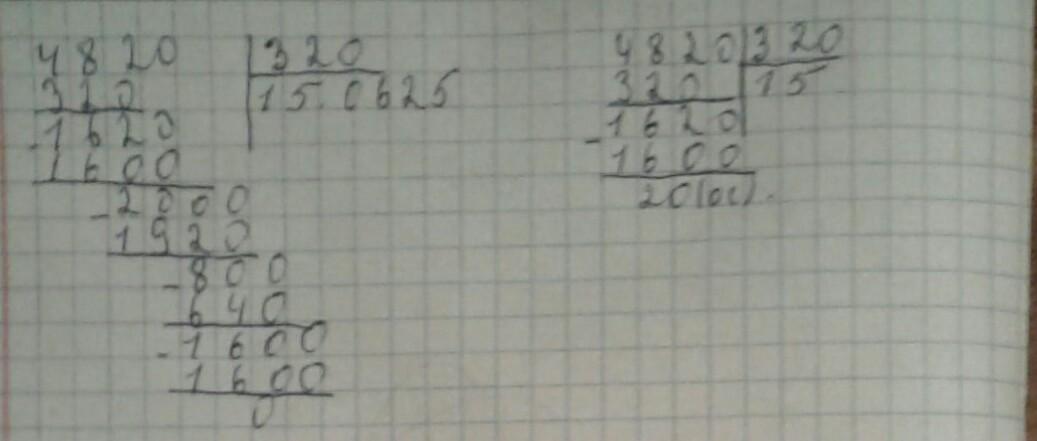 4820 | 320
320 | 15.0625
1620
- 1600
- 2000
1920
- 800
640
- 1600
1600
0
4820 | 320
320 | 15
- 1620
1600
20(ос).